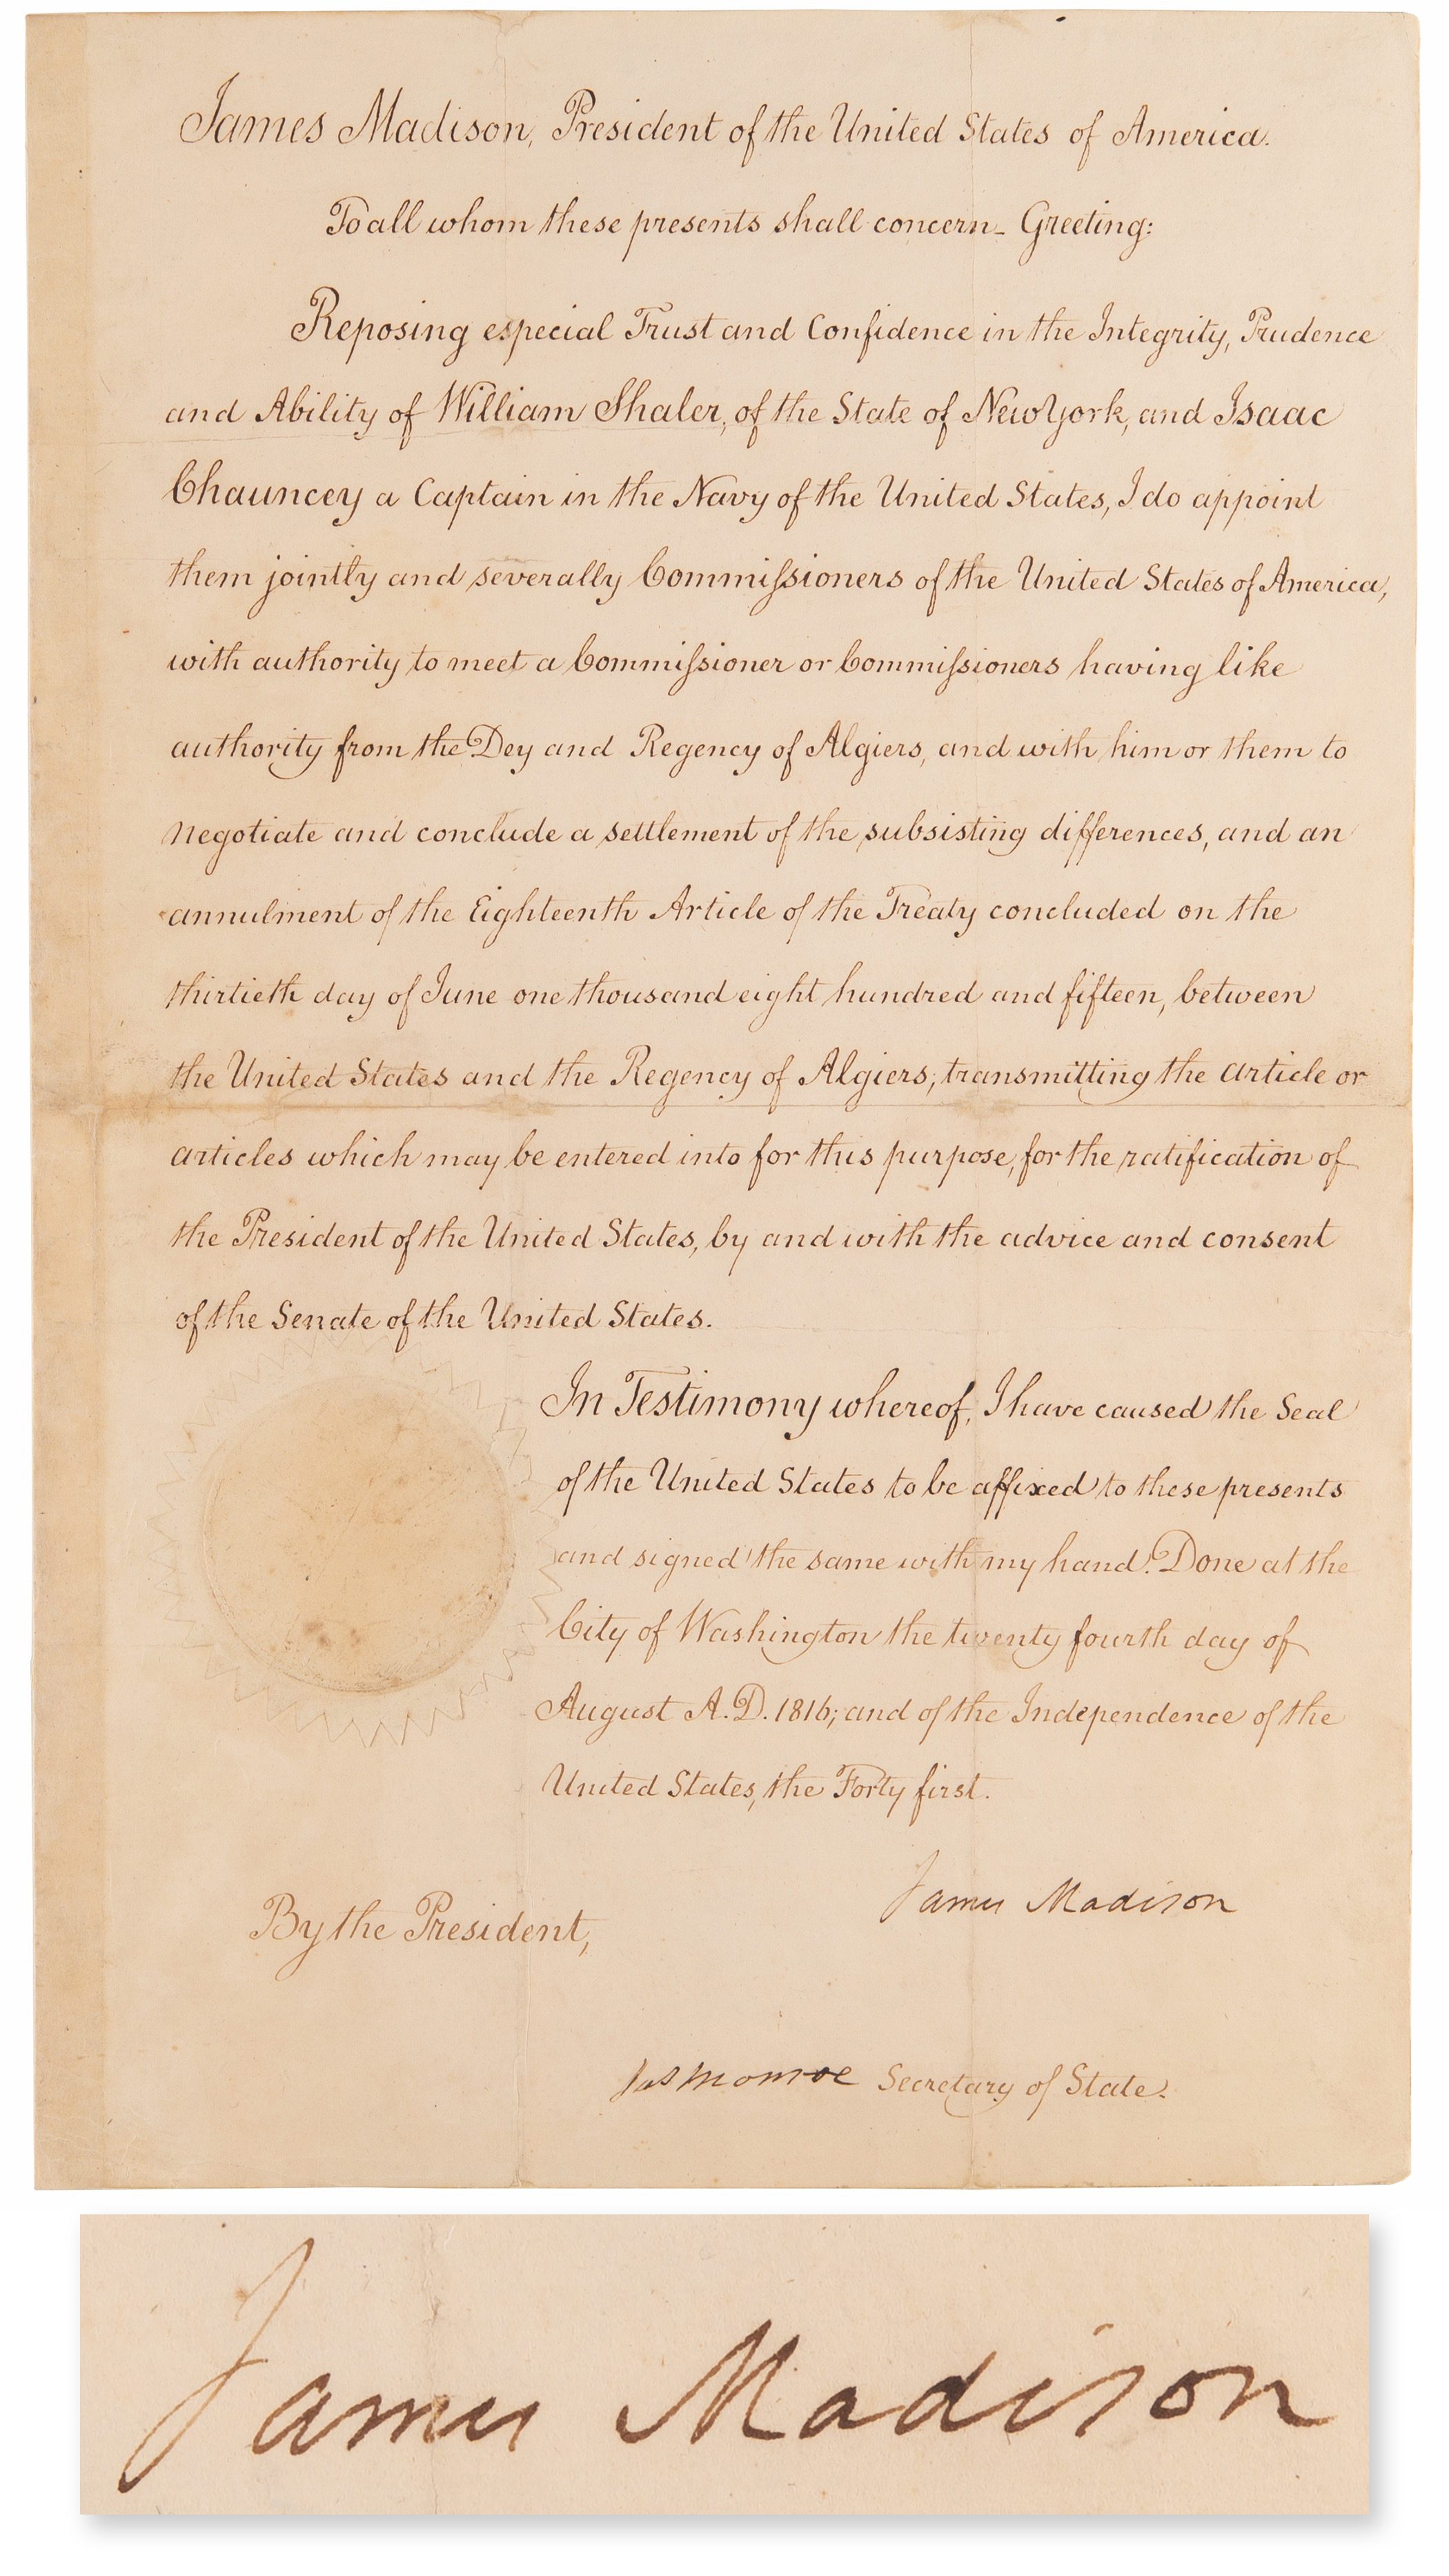 James Madison, President of the United States of America.
To all whom these presents shall concern_ Greeting:
Reposing especial Trust and Confidence in the Integrity, Prudence
and Ability of William Shaler, of the State of New York, and Isaac
Chauncey a Captain in the Navy of the United States, I do appoint
them jointly and severally Commiſsioners of the United States of America,
with authority to meet a Commiſsioner or Commiſsioners having like
authority from the Dey and Regency of Algiers, and with him or them to
negotiate and conclude a settlement of the subsisting differences, and an
annulment of the Eighteenth Article of the Treaty concluded on the
thirtieth day of June one thousand eight hundred and fifteen, between
the United States and the Regency of Algiers; transmitting the article or
articles which may be entered into for this purpose, for the ratification of
the President of the United States, by and with the advice and consent
of the Senate of the United States.
In Testimony whereof, I have caused the Seal
of the United States to be affixed to these presents
and signed the same with my hand. Done at the
City of Washington the twenty fourth day of
August A.D. 1816; and of the Independence of the
United States, the Forty first.
James Madison
By the President,
Jas Monroe Secretary of State.
James Madison